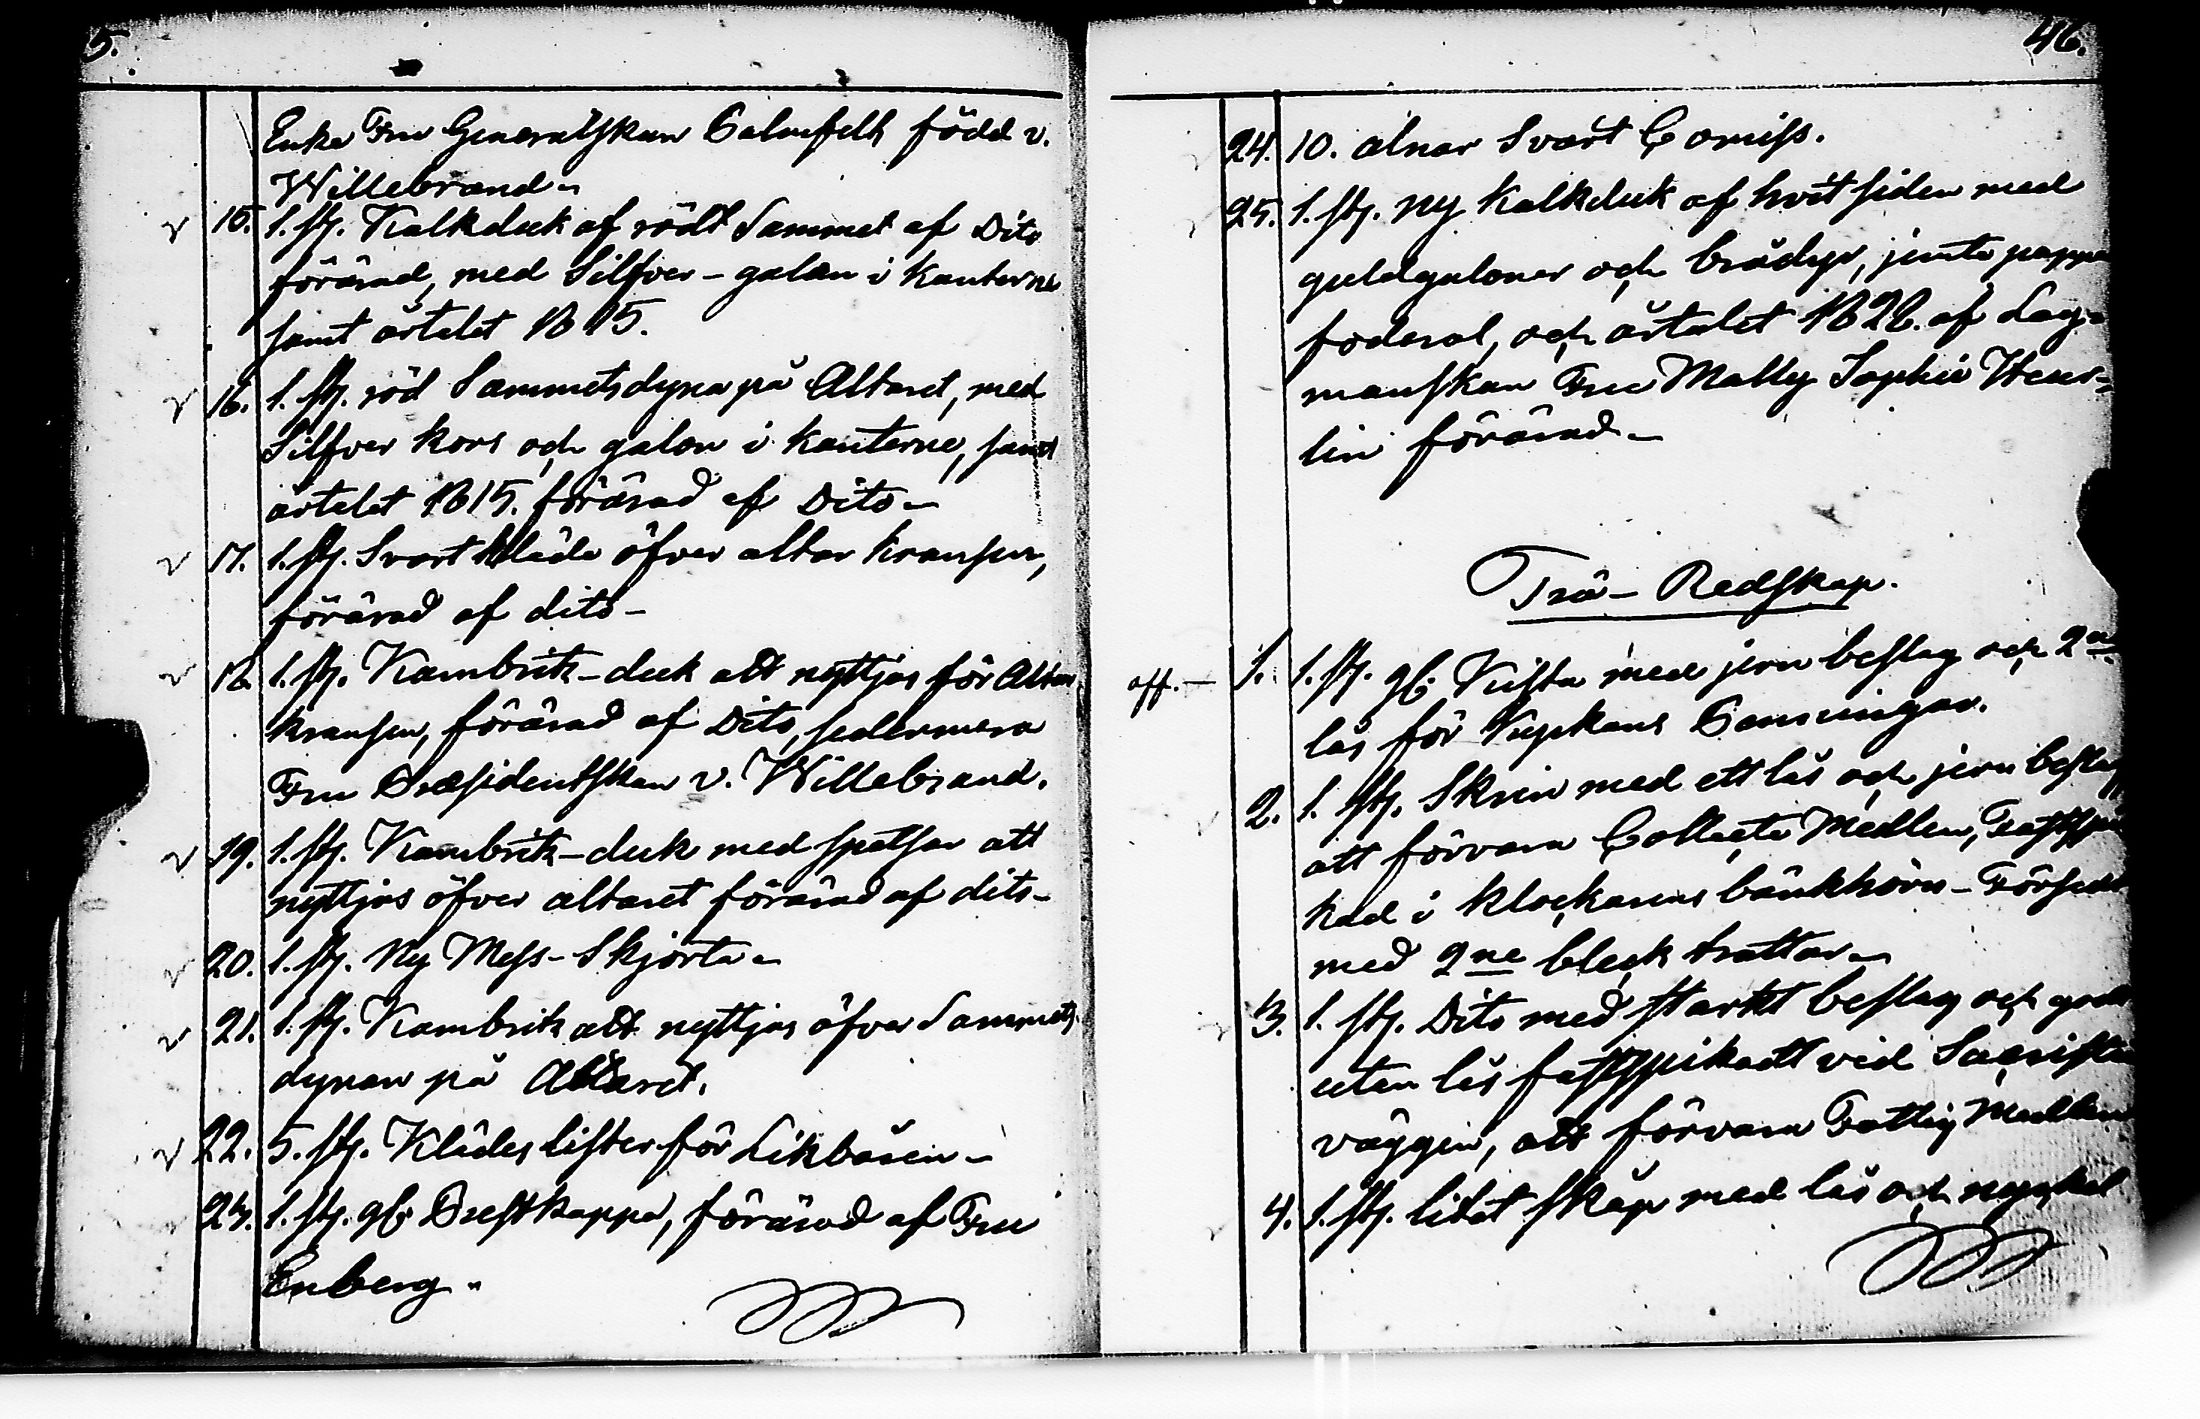 5.
Enka Fru Generalskan född v.
Willebrand
15. 1. st. Kalkduk af rödt Sammet af Dito
förärad, med Silfver-galon i kanterne
samt årtalet 1815.
16. 1. st. röd Sammetsdyna på Altaret, med
Silfver kors och galon i kanterne, samt
årtalet 1815. förärad af Dito
17. 1. st. Svart kläde öfver altar kransen,
förärad af dito
18. 1. st. Kambriks-duk att nyttjas för Altar
kransen, förärad af Dito, sedermera
Fru Præsidentskan v. Willebrand.
19. 1. st. Kambriks-duk med spetsar att
nyttjas öfver altaret förärad af dito
20. 1. st. Ny Mess-Skjorta
21. 1. st. Kambriks att nyttjas öfver Sammets
dynan på Altaret.
22. 5. st. Klädes lister för Likbåren
23. 1. st. gl. Prestkappa, förärad af Fru
Enberg
46.
24. 10. alnar Svart
25. 1. st. ny Kalkduk af hvit siden med
guldgaloner och brådyr, jemte papps
foderal, och årtalet 1828. af Lag-
manskan Fru Mally Sophie
lin förärad
Trä-Redskap.
aff. 1. 1. st. gl. Kista med jern beslag och 2ne
lås för Kyrkans
2. 1. st. Skrin med ett lås och jern beslag
att förvara Collecte Medlen, Fastspi
kad i klockarens bänkhörn - Försedt
med 2ne bleck trattar
3. 1. st. Dito med starkt beslag och godt
utan lås fastspikadt vid Sacristie
väggen, att förvara Fattig Medlen
4. 1. st. litet skåp med lås och nyckel